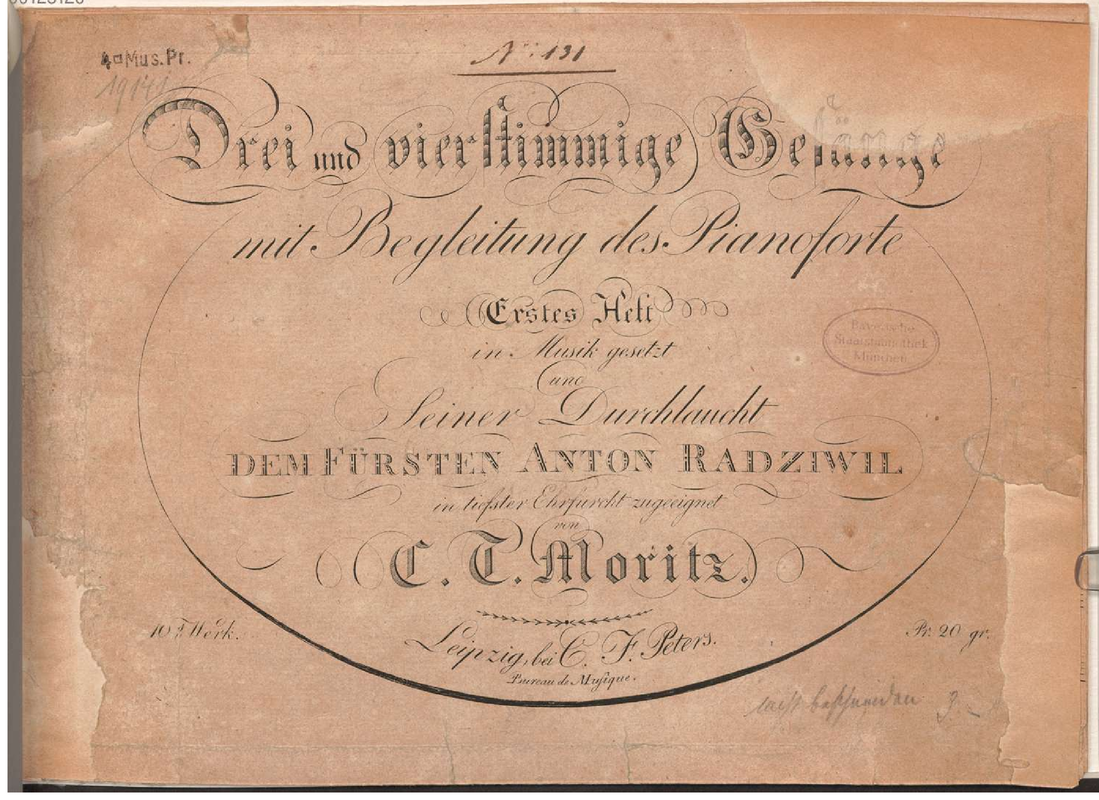 4° Mus. Pr.
19141
No: 131
Drei und vierstimmige Gesänge
mit Begleitung des Pianoforte
Erstes Heft
in Musik gesetzt
und
Seiner Durchlaucht
DEM FÜRSTEN ANTON RADZIWIL
in tiefster Ehrfurcht zugeeignet
von
C. T. Moritz.
10tes Werk.
Pr. 20 gr.
Leipzig, bei C. F. Peters.
Bureau de Musique.
Bayerische
Staatsbibliothek
München